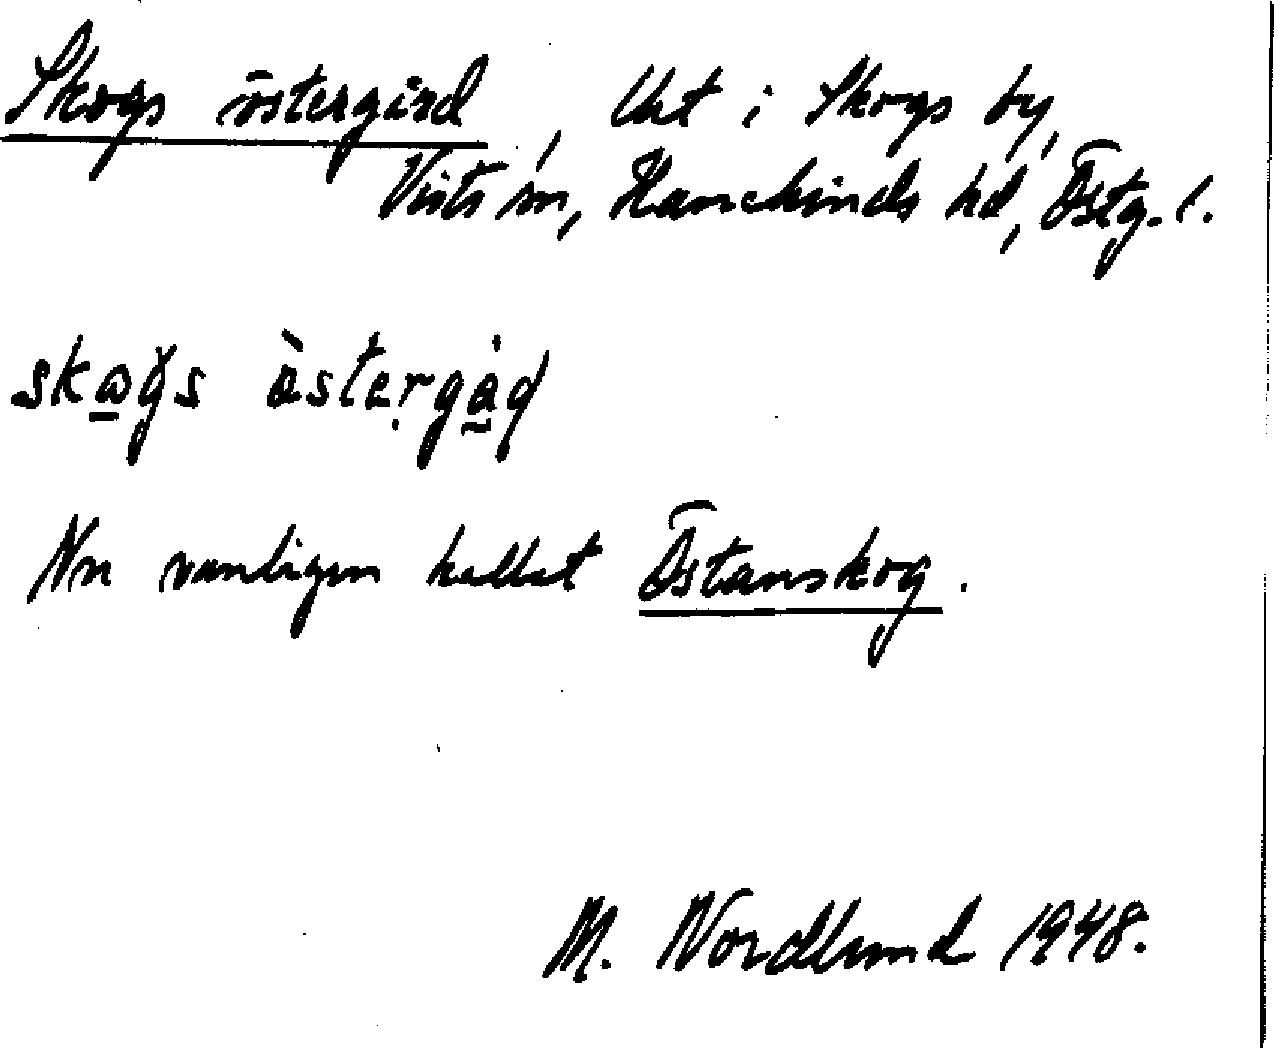 Skogs östergård, Utt i Skogs by,
Vists sn, Hanekinds hd, Östg. l.
skω̠ɣs ὰsteṛgàd
Nu vanligen kallat Östanskog.
M. Nordlund 1948.